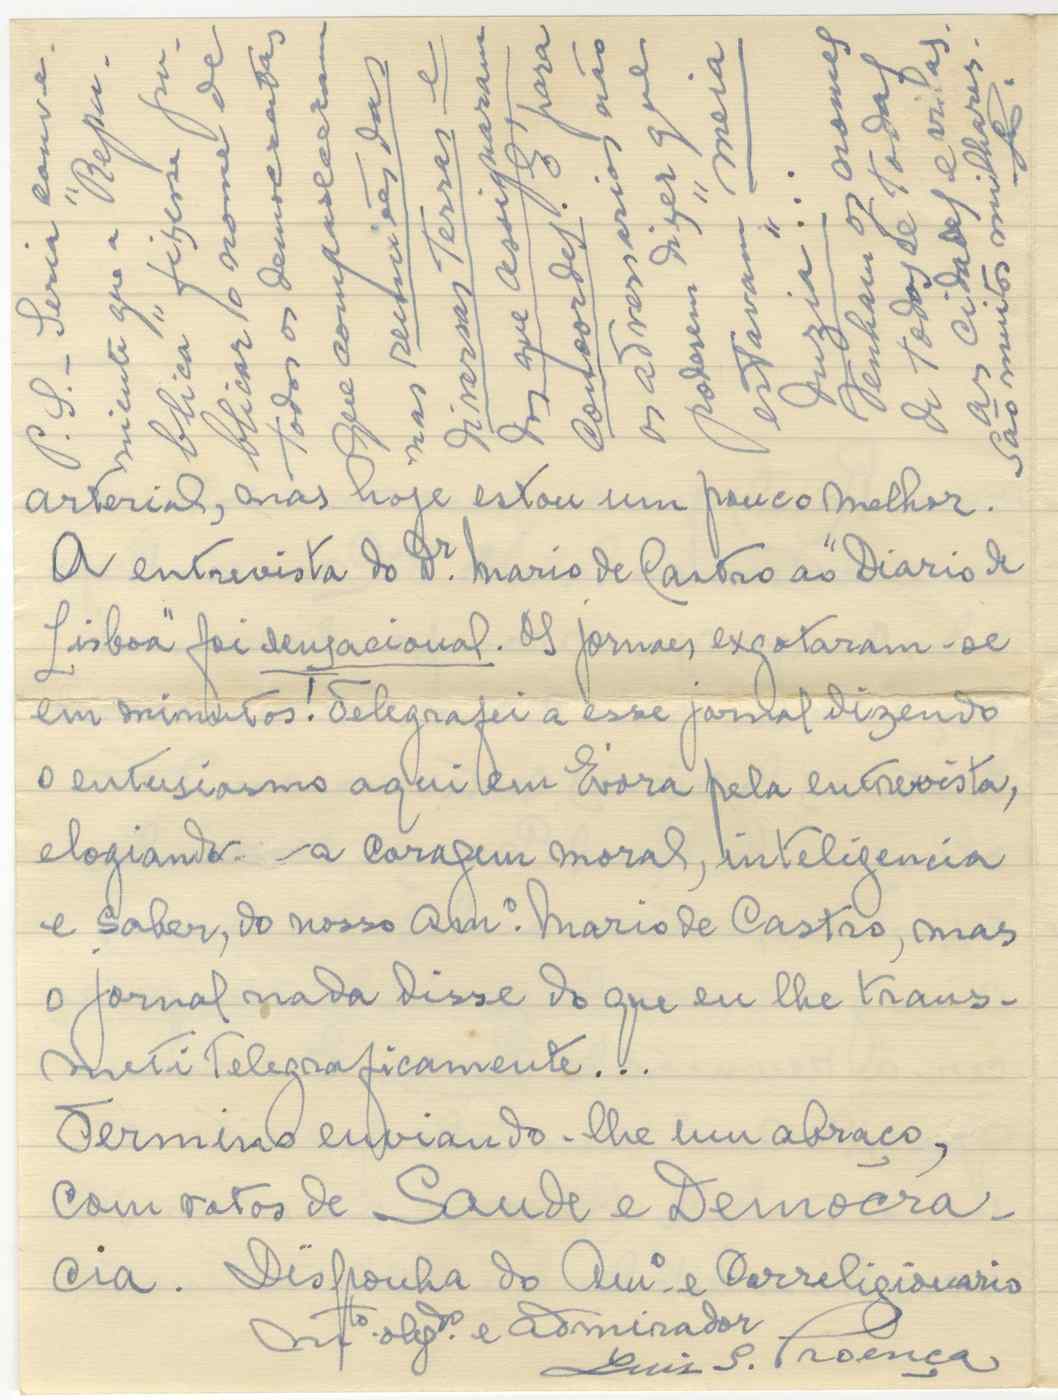 arterial, mas hoje estou um pouco melhor.
A entrevista do Dr. Mario de Castro ao "Diario de
Lisboa" foi sensacional. Os jornaes exgotaram-se
em minutos! Telegrafei a esse jornal dizendo
o entusiasmo aqui em Évora pela entrevista,
elogiando-a coragem moral, inteligencia
e saber, do nosso Amº. Mario de Castro, mas
o jornal nada disse do que eu lhe trans-
meti telegraficamente...
Termino enviando-lhe um abraço,
com votos de Saude e Democra-
cia. Disponha do Amº. e Correligionario
mto. obgdo. e admirador
Luis S. Proença
P.S. – Seria conve-
niente que a "Repu-
blica" fizesse pu-
blicar o nome de
todos os democratas
que compareceram
nas reuniões das
diversas Terras e
dos que assignaram
concordes. É para
os adversarios não
poderem dizer que
estavam "meia
duzia"...
Venham os nomes
de todos, de todas
as cidades e vilas.
São muitos milhares.